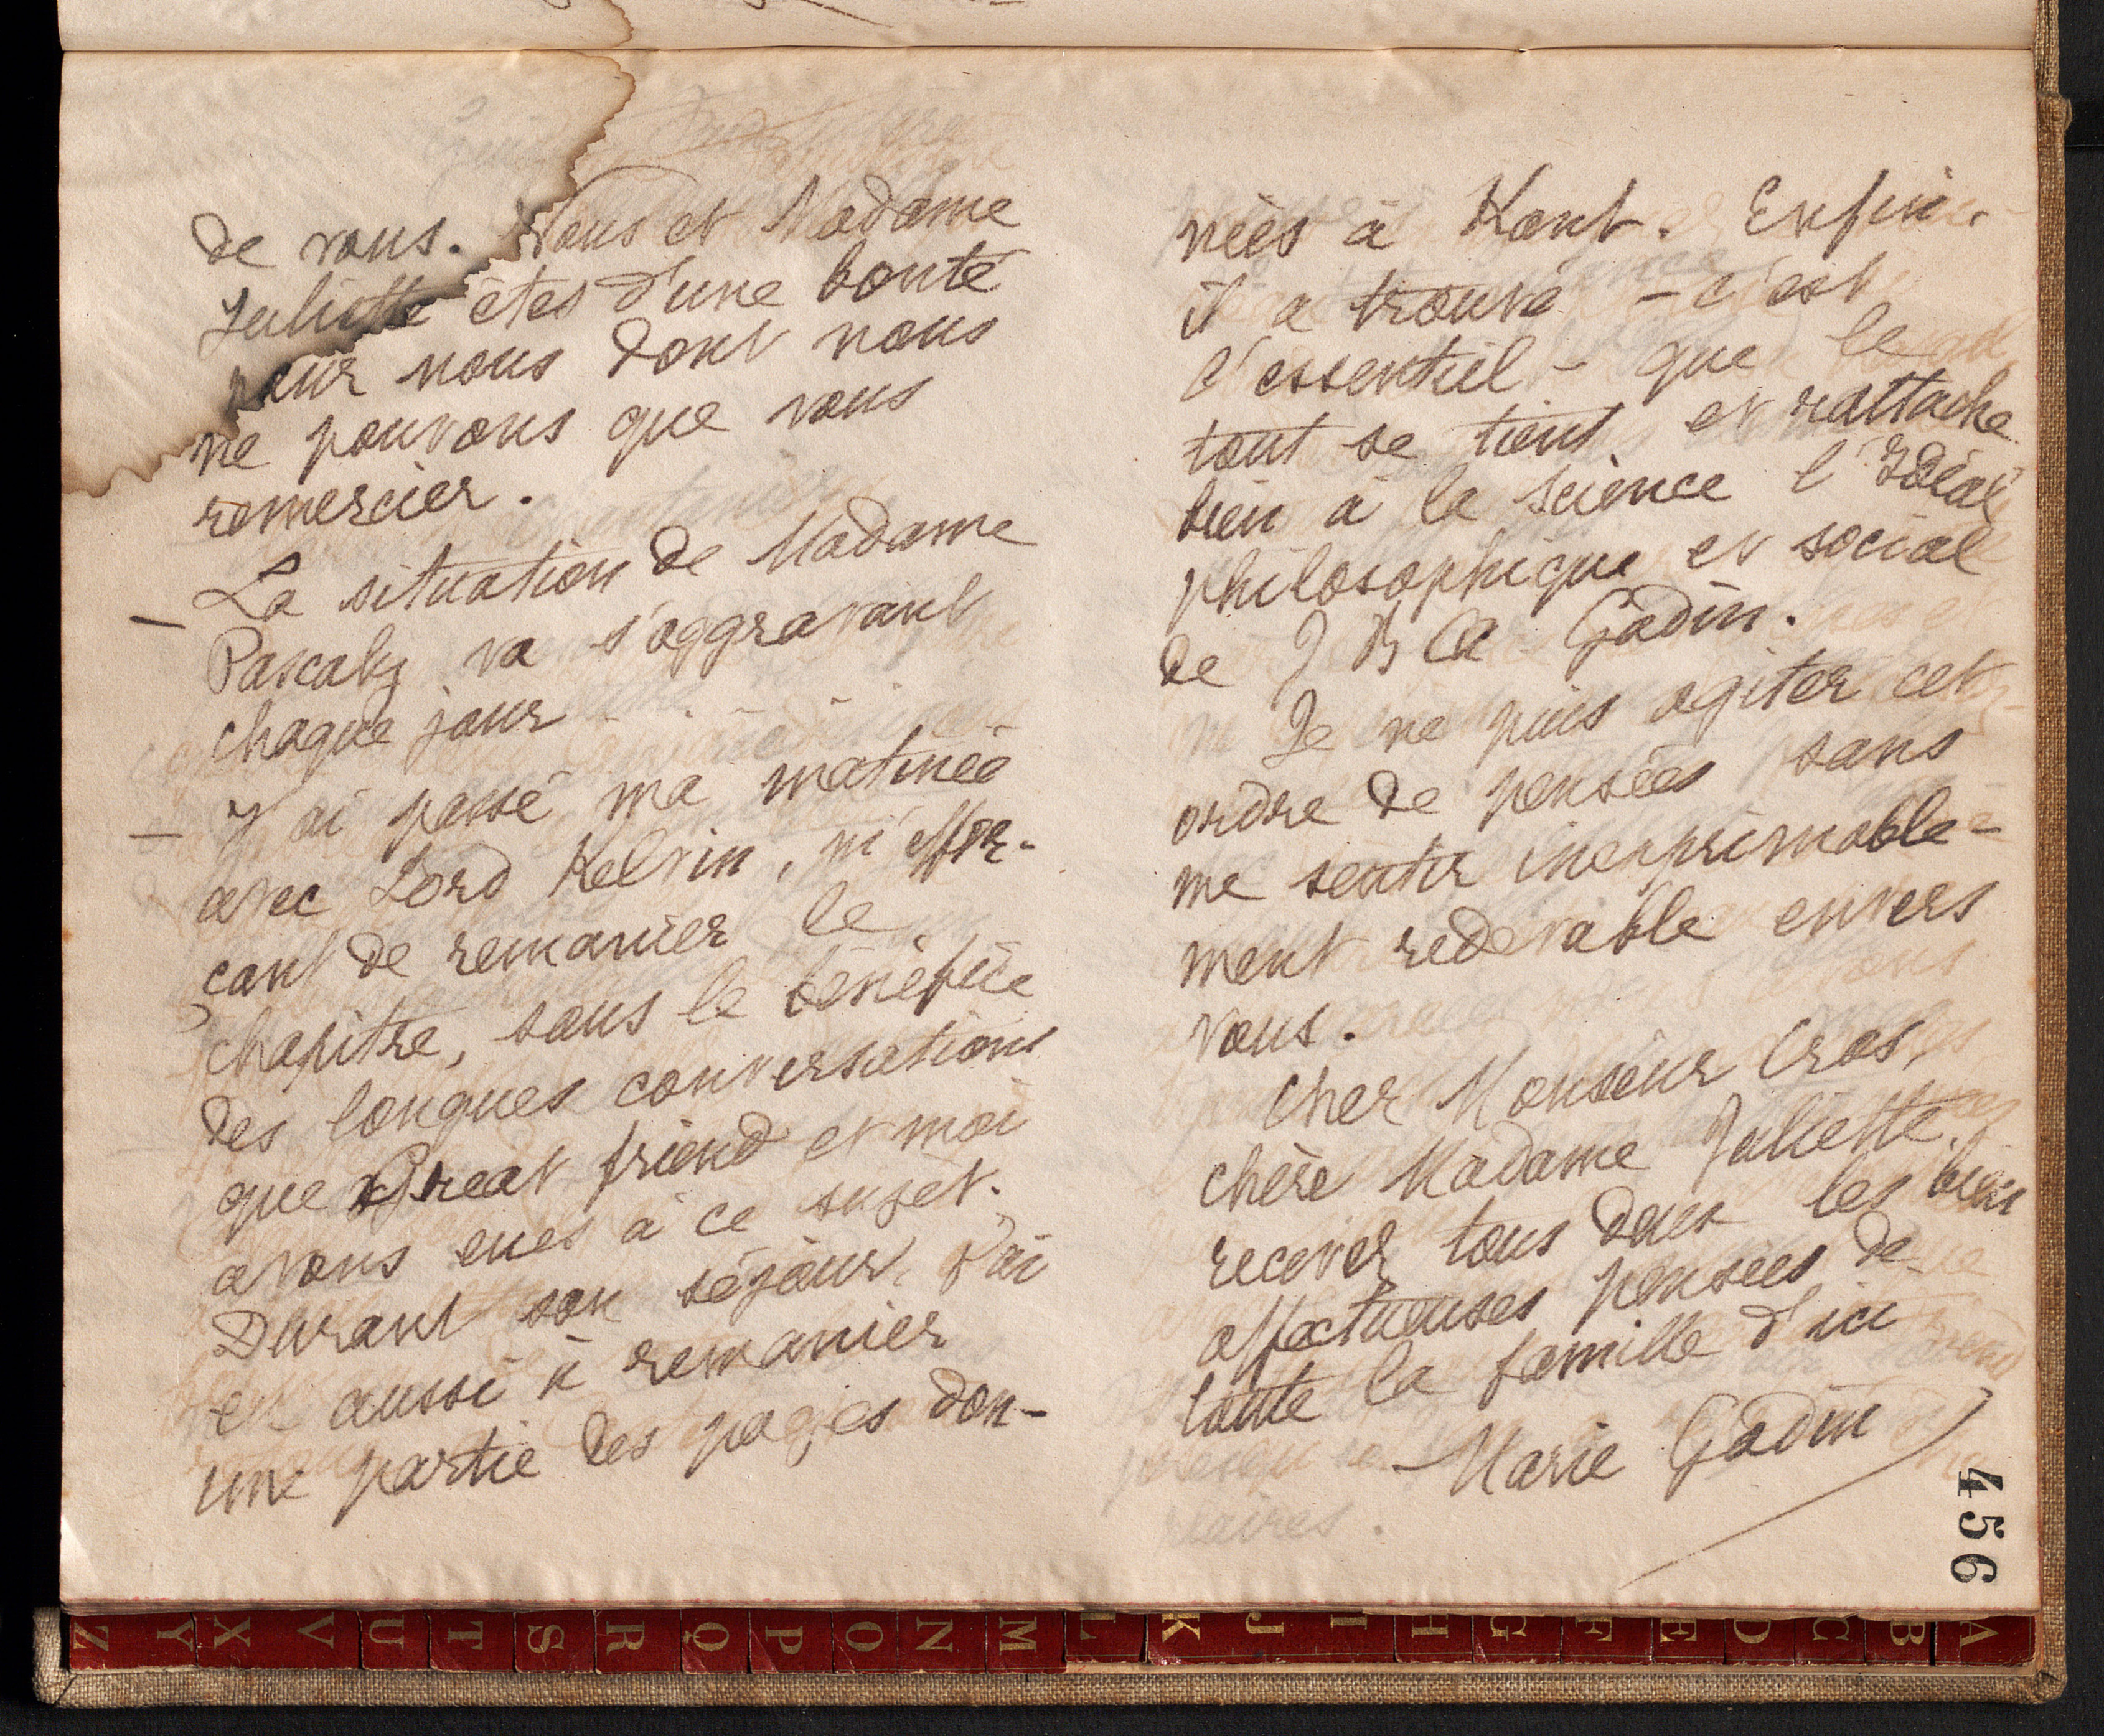 de vous. Vous et Madame
Juliette êtes d'une bonté
pour nous dont nous
ne pouvons que vous
remercier.
— La situation de Madame
Pascaly va s'aggravant
chaque jour
— J'ai passé ma matinée
avec Lord Kelvin, m'effor-
çant de remanier le
chapitre, sous le bénéfice
des longues conversations
que Great friend et moi
avons eues à ce sujet.
Durant son séjour, j'ai
eu aussi à remanier
une partie des pages don-
nées à Kant. Enfin,
il a trouvé - c'est
l'essentiel - que le
tout se tient et rattache
bien à la science l'Idéal
philosophique et social
de J B A Godin.
Je ne puis agiter cet
ordre de pensées sans
me sentir inexprimable-
ment redevable envers
vous.
Cher Monsieur Cros,
chère Madame Juliette,
recevez tous deux les bien
affectueuses pensées de
toute la famille d'ici
- Marie Godin
456
Z Y X V U T S R Q P O N M L K J I H G F E D C B A